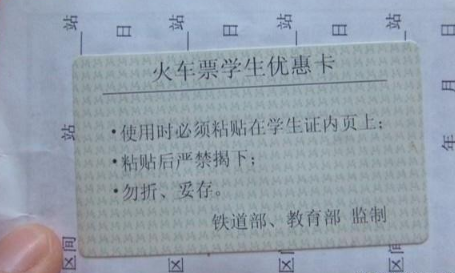 站 日 站 日 站 日
火车票学生优惠卡
·使用时必须粘贴在学生证内页上;
·粘贴后严禁揭下;
·勿折、妥存。
铁道部、教育部 监制
站
年 月
区间 区间 区间 区间